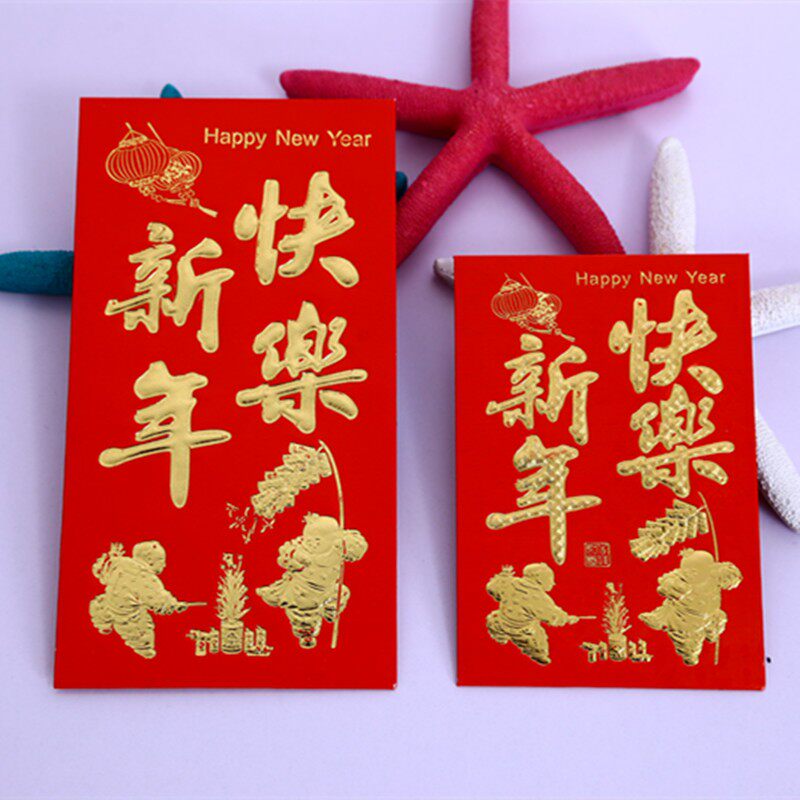 Happy New Year
新年
快樂
Happy New Year
新年
快樂